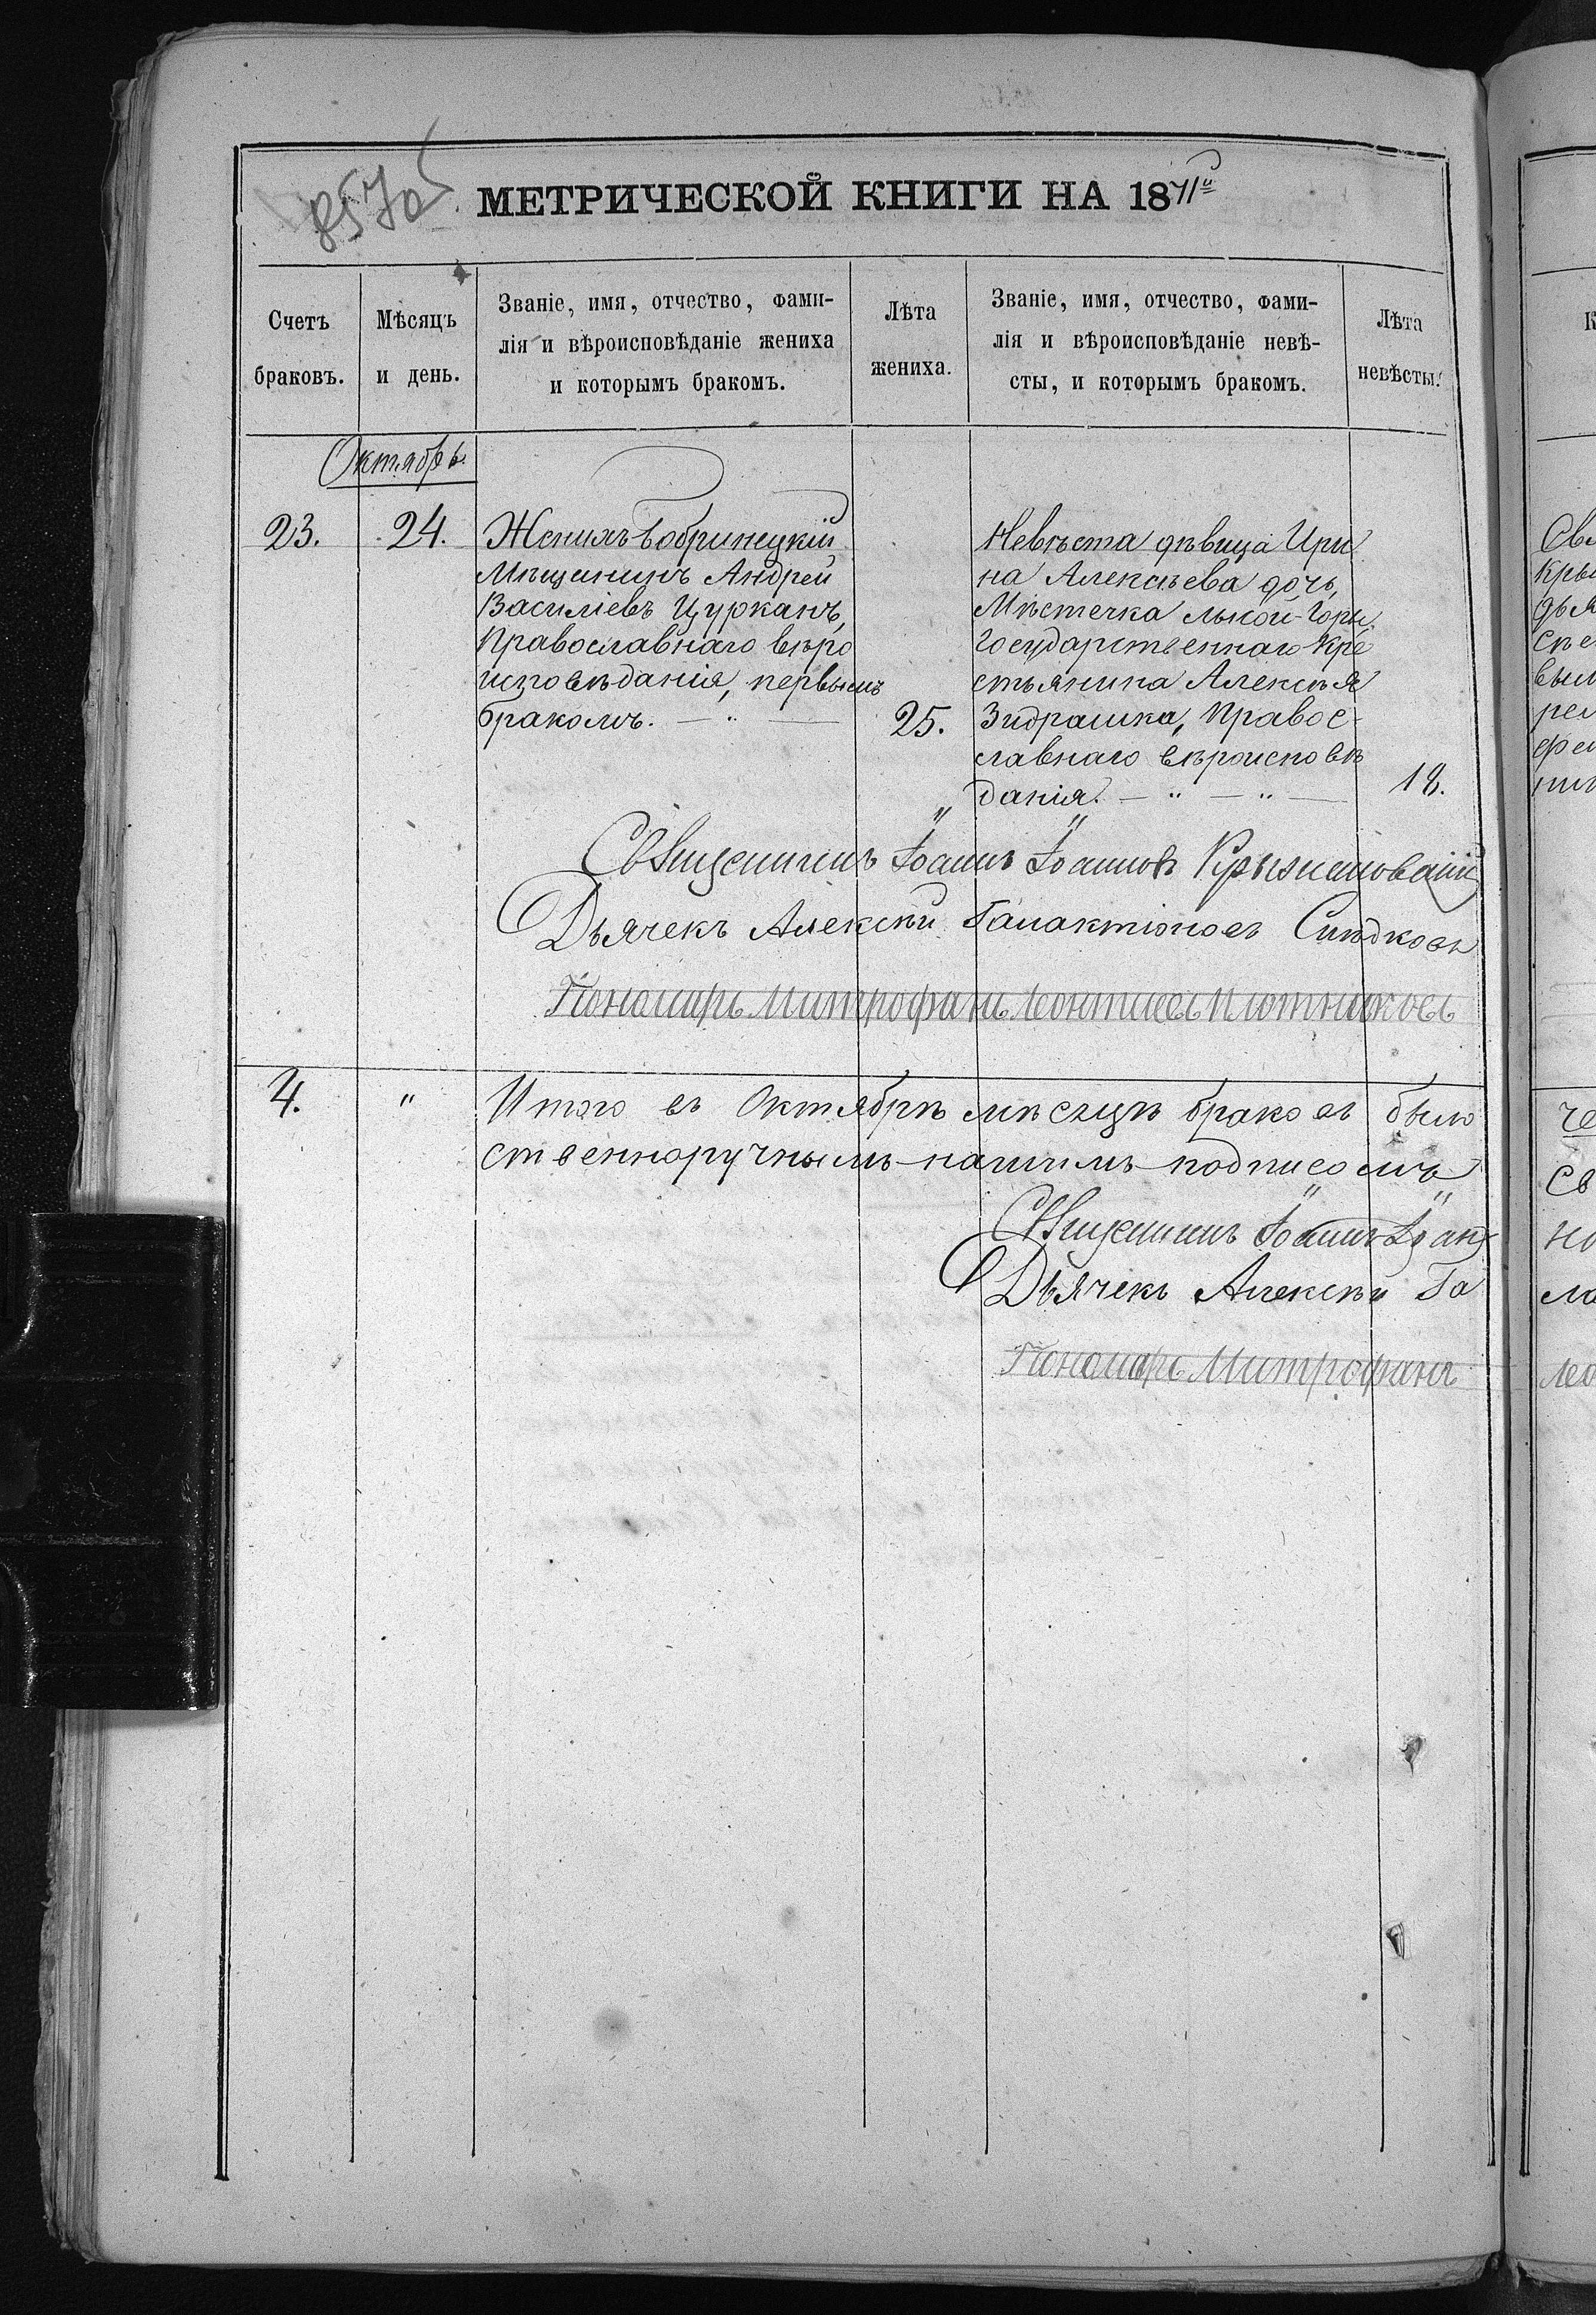 857об
МЕТРИЧЕСКОЙ КНИГИ НА 1871й
Счетъ браковъ.
Мѣсяцъ и день.
Званіе, имя, отчество, фами-
лія и вѣроисповѣданіе жениха
и которымъ бракомъ.
Лѣта жениха.
Званіе, имя, отчество, фами-
лія и вѣроисповѣданіе невѣ-
сты, и которымъ бракомъ.
Лѣта невѣсты.
Октябрь.
23.
24.
Женихъ Бобринецкій
Мѣщанинъ Андрей
Василіевъ Цурканъ,
Православнаго вѣро
исповѣданія, первымъ
бракомъ.
25.
Невѣста дѣвица Ири
на Алексѣева дочь,
Мѣстечка Лысой-Горы,
Государственнаго Кре
стьянина Алексѣя
Зидрашка, Правос-
славнаго вѣроисповѣ
данія.
18.
Священникъ Іоаннъ Іоанновъ Крыжановскій
Дьячекъ Алексѣй Галактіоновъ Сѣдковъ
Пономарь Митрофанъ Леонтиевъ Плотниковъ
4.
"
Итого въ Октябрѣ мѣсяцѣ браковъ было
ственноручнымъ нашимъ подписомъ
Священникъ Іоаннъ Іоан
Дьячекъ Алексѣй Га
Пономарь Митрофанъ